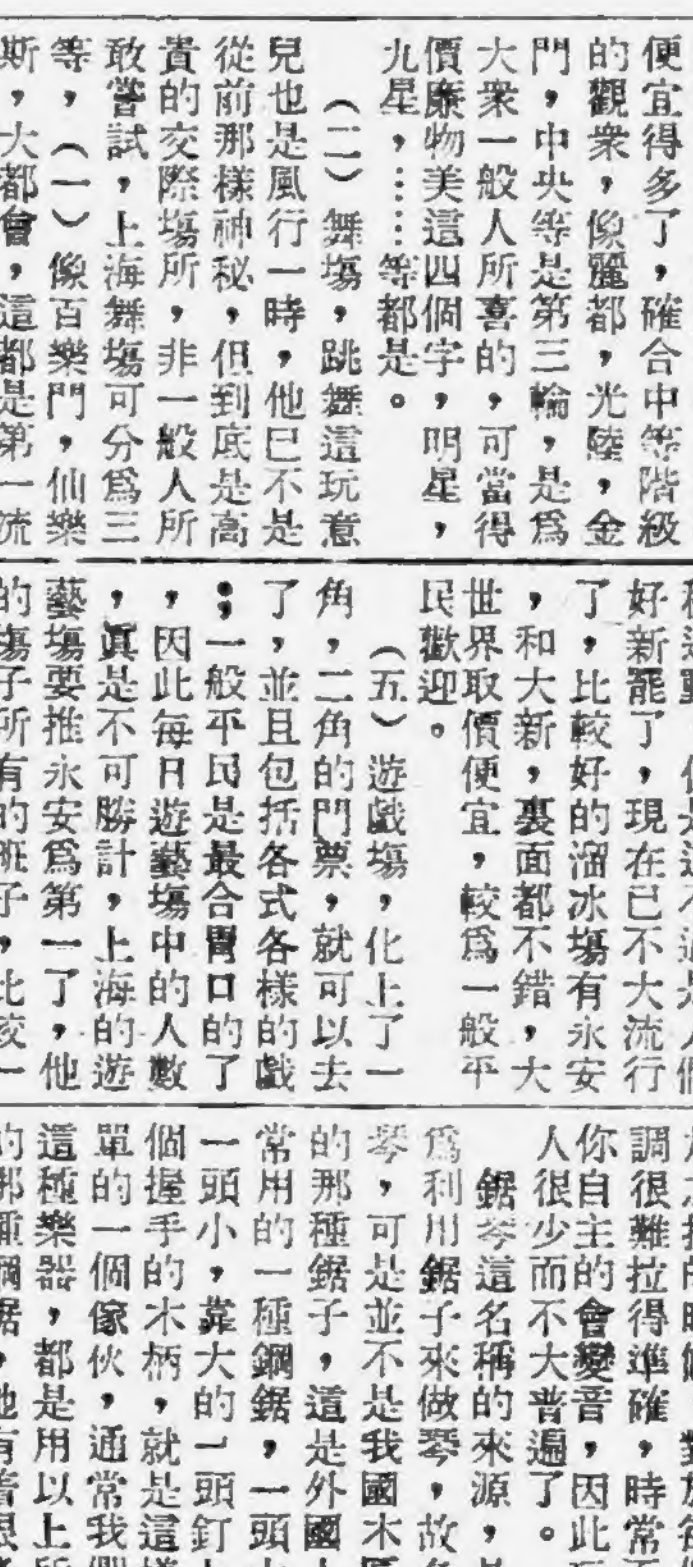 便宜得多了，確合中等階級
的觀衆，像麗都，光陸，金
門，中央等是第三輪，是爲
大衆一般人所喜的，可當得
價廉物美這四個字，明星，
九星，……等都是。
（二）舞塲，跳舞這玩意
兒也是風行一時，他已不是
從前那樣神秘，但到底是高
貴的交際塲所，非一般人所
敢嘗試，上海舞塲可分爲三
等，（一）像百樂門，仙樂
斯，大都會，這都是第一流
好新罷了，現在已不大流行
了，比較好的溜冰塲有永安
，和大新，裏面都不錯，大
世界取價便宜，較爲一般平
民歡迎。
（五）遊戲塲，化上了一
角，二角的門票，就可以去
了，並且包括各式各樣的戲
；一般平民是最合胃口的了
，因此每日遊藝塲中的人數
，眞是不可勝計，上海的遊
藝塲要推永安爲第一了，他
的塲子所有的班子，比較一
調很難拉得準確，時常
你自主的會變音，因此
人很少而不大普遍了。
鋸琴這名稱的來源，
爲利用鋸子來做琴，故
琴，可是並不是我國木
的那種鋸子，這是外國
常用的一種鋼鋸，一頭
一頭小，靠大的一頭釘
個握手的木柄，就是這
單的一個傢伙，通常我們
這種樂器，都是用以上所
的那種鋼鋸，他有着